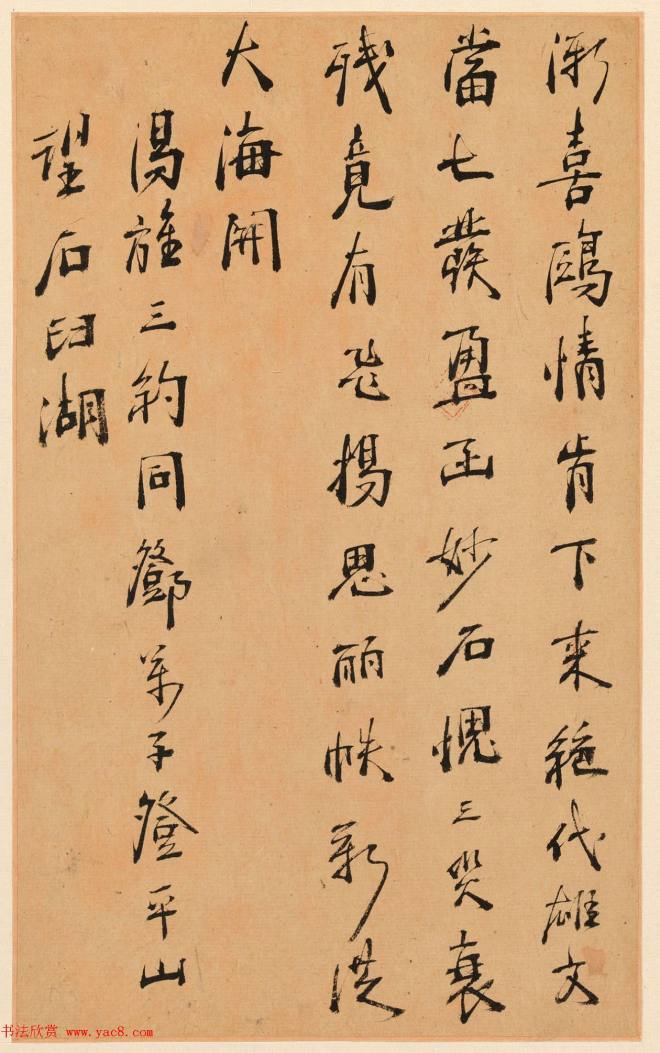 漸喜鷗情肯下来絕代雄文
當七發盈函妙石愧三災衰
残竟有飛揚思丽帙新從
大海開
湯雄三約同鄧萬子登平山
望石臼湖
书法欣赏 www.yac8.com